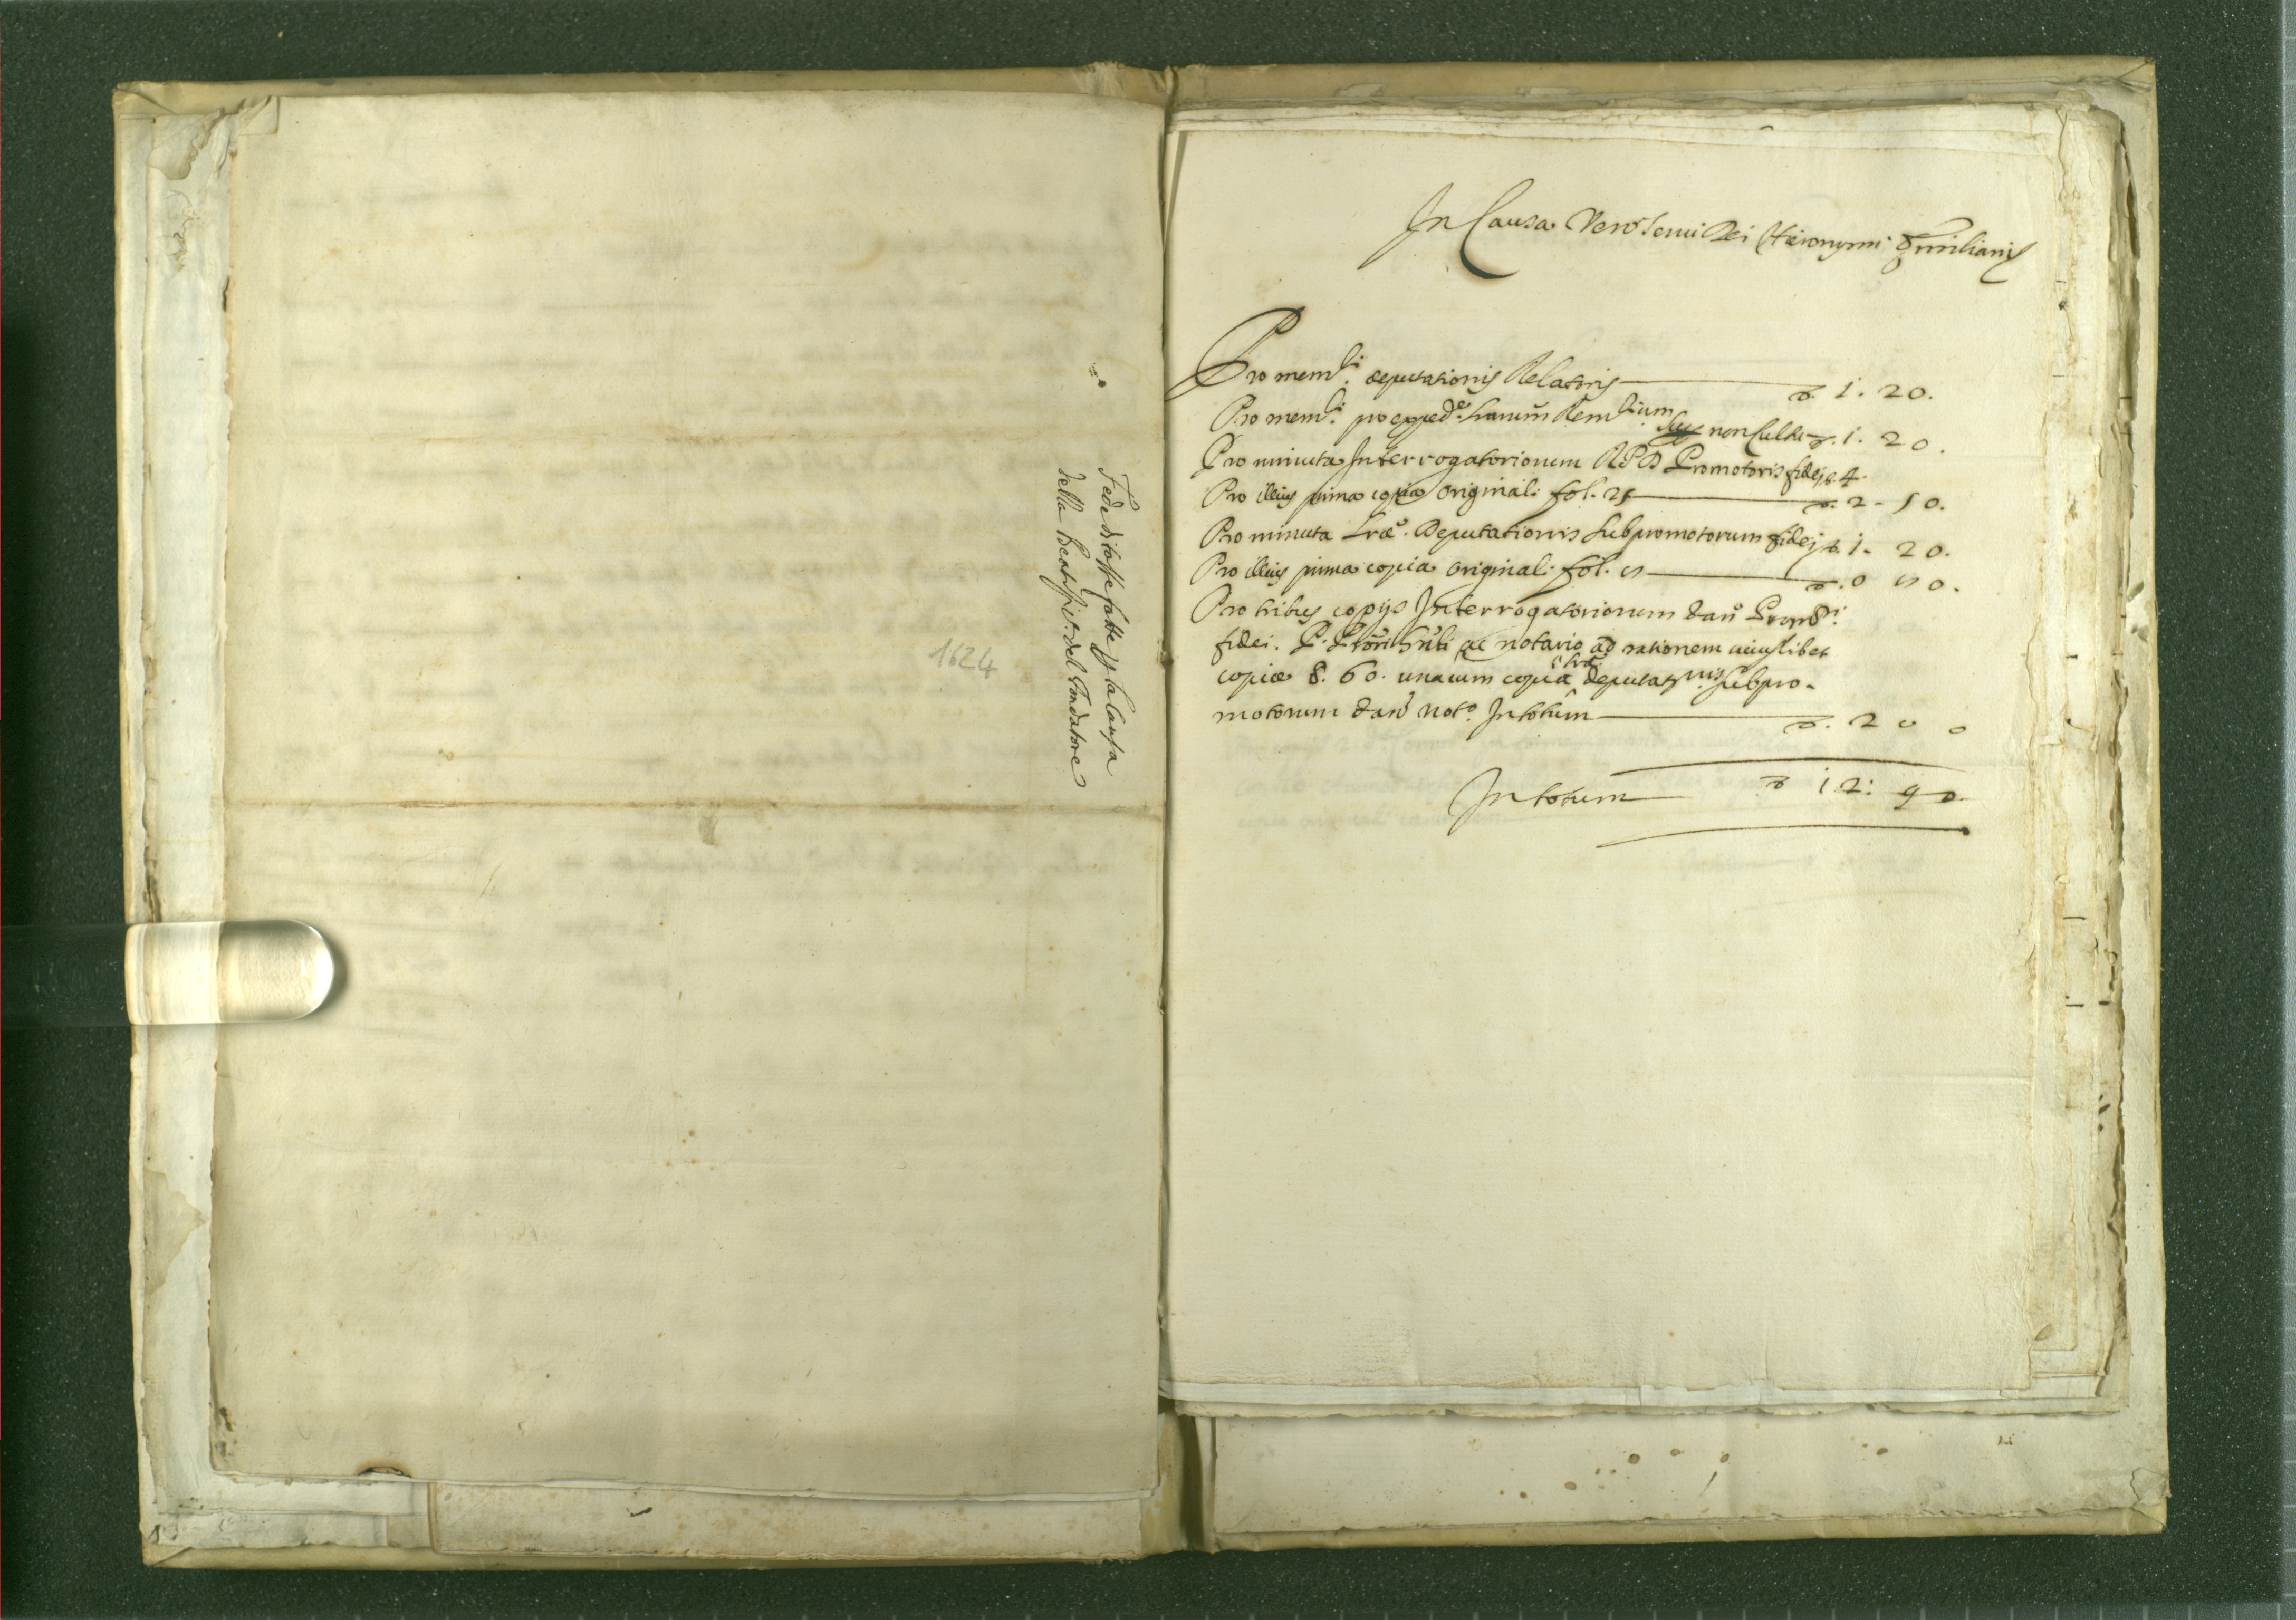 Fede di tasse fatte p la causa
della Beatific.ne del Fondatore
1624
In Causa Ven. Serui Dei Hieronymi Emiliani
Pro mem.li deputationis Relatoris 1. 20.
Pro mem.li pro exped.e harum Rem.lium
non cultu 1. 20.
Pro minuta Interrogatoriorum RPD Promotoris fidei 4.
Pro illius prima copia original: fol. 25 2 - 50.
Pro minuta Lræ. Deputationis Subpromotorum fidei 1. 20.
Pro illius prima copia original: fol. 5 0 50.
Pro tribus copijs Interrogatoriorum
fidei. ac notario ad rationem cuiuslibet
copiæ 8. 60. unacum copia Lræ deputatnis Subpro-
motorum dand. not.o In totum 2 0 0
In totum 12: 90.